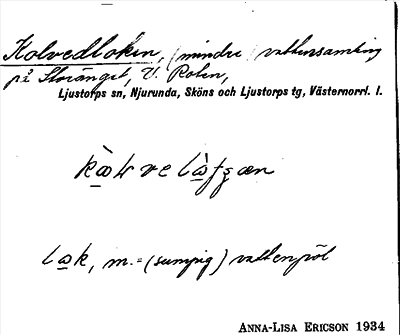 Kolvedloken, (mindre) vattensamling
på Storänget, V. Rolen,
Ljustorps sn, Njurunda, Sköns och Ljustorps tg, Västernorrl. l.
lɷk, m. = (sumpig) vattenpöl
ANNA-LISA ERICSON 1934